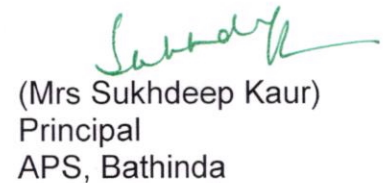 Sukhdeep
(Mrs Sukhdeep Kaur)
Principal
APS, Bathinda